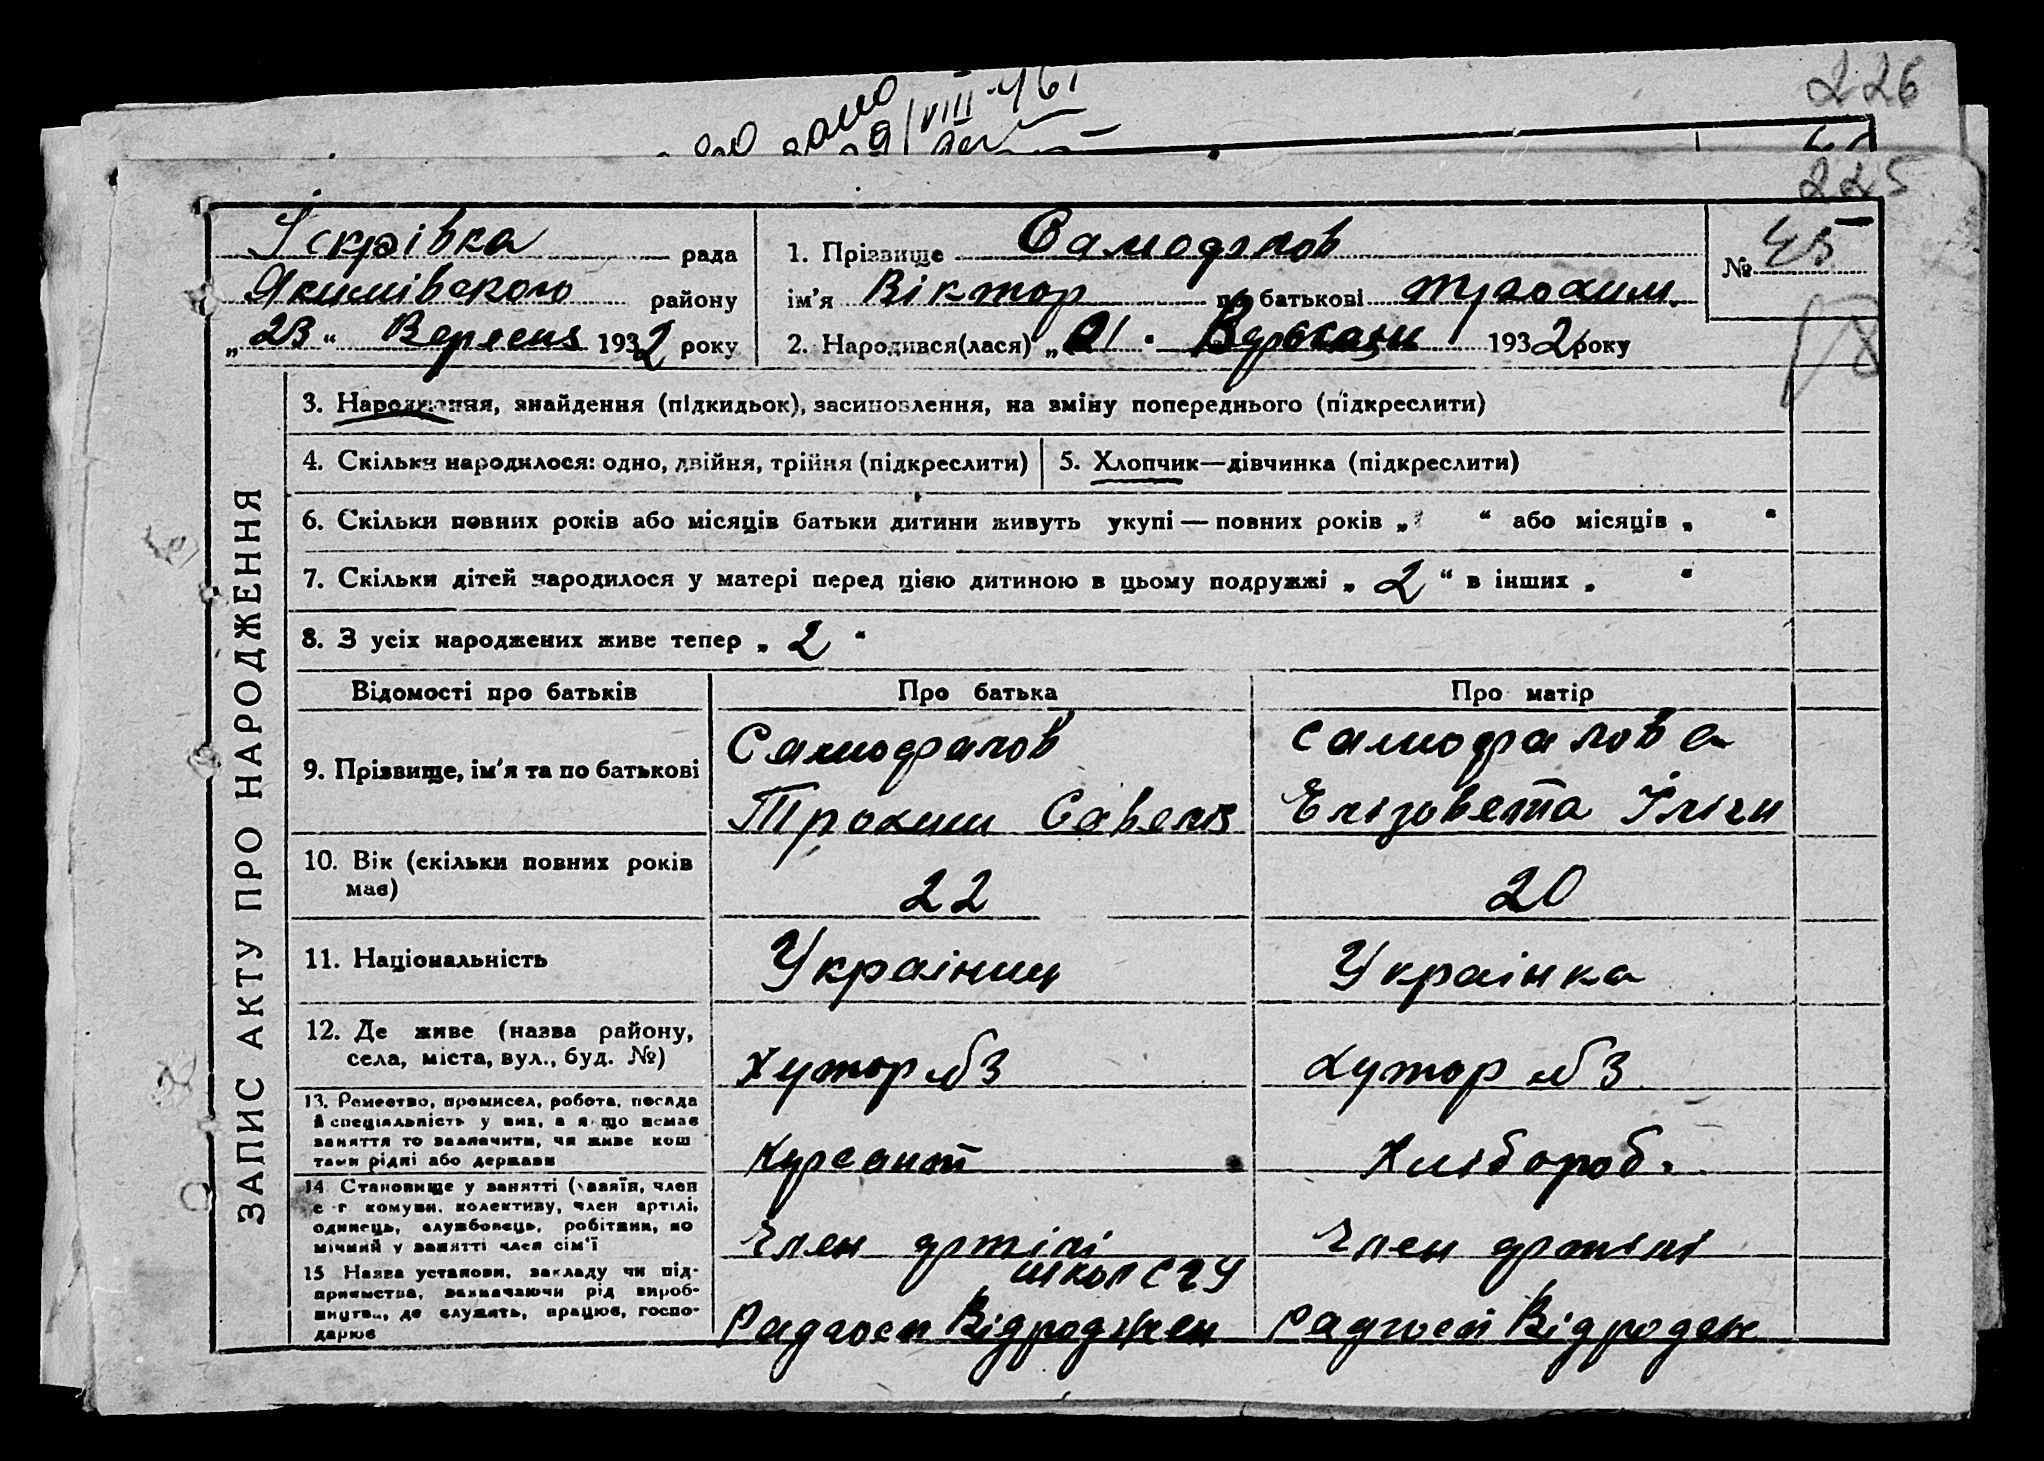 226
225
Іскрівка рада
Якимівського району
„23“ Вересня 1932 року
1. Прізвище Самофалов
ім'я Віктор по батькові Трохим.
2. Народився(лася) „ 1932 року
№ 45
ЗАПИС АКТУ ПРО НАРОДЖЕННЯ
3. Народження, знайдення (підкидьок), засиновлення, на зміну попереднього (підкреслити)
4. Скільки народилося: одно, двійня, трійня (підкреслити)
5. Хлопчик—дівчинка (підкреслити)
6. Скільки повних років або місяців батьки дитини живуть укупі — повних років „ “ або місяців „ “
7. Скільки дітей народилося у матері перед цією дитиною в цьому подружжі „2“ в інших „ “
8. З усіх народжених живе тепер „2“
Відомості про батьків Про батька Про матір
9. Прізвище, ім'я та по батькові
Самофалов
Трохим Савелів
Самофалова
Єлізовета Іліги
10. Вік (скільки повних років
має)
22
20
11. Національність
Украіниц
Украінка
12. Де живе (назва району,
села, міста, вул., буд. №)
Хутор №3
Хутор №3
13. Ремество, промисел, робота, посада
й спеціяльність у них, а якщо немає
заняття то зазначити, чи живе кош
тами рідні або держави
Курсант
Хлібороб.
14 Становище у занятті (хазяїн, член
с г комуни, колективу, член артілі,
одинець, службовець, робітник, по
мічний у занятті член сім'ї
Член артілі
Член артілі
15 Назва установи, закладу чи під-
приємства, зазначаючи рід вироб-
ництва, де служить, працює, госпо-
дарює
школ СГУ
Радгосп Відроджен
Радгосп Відроден